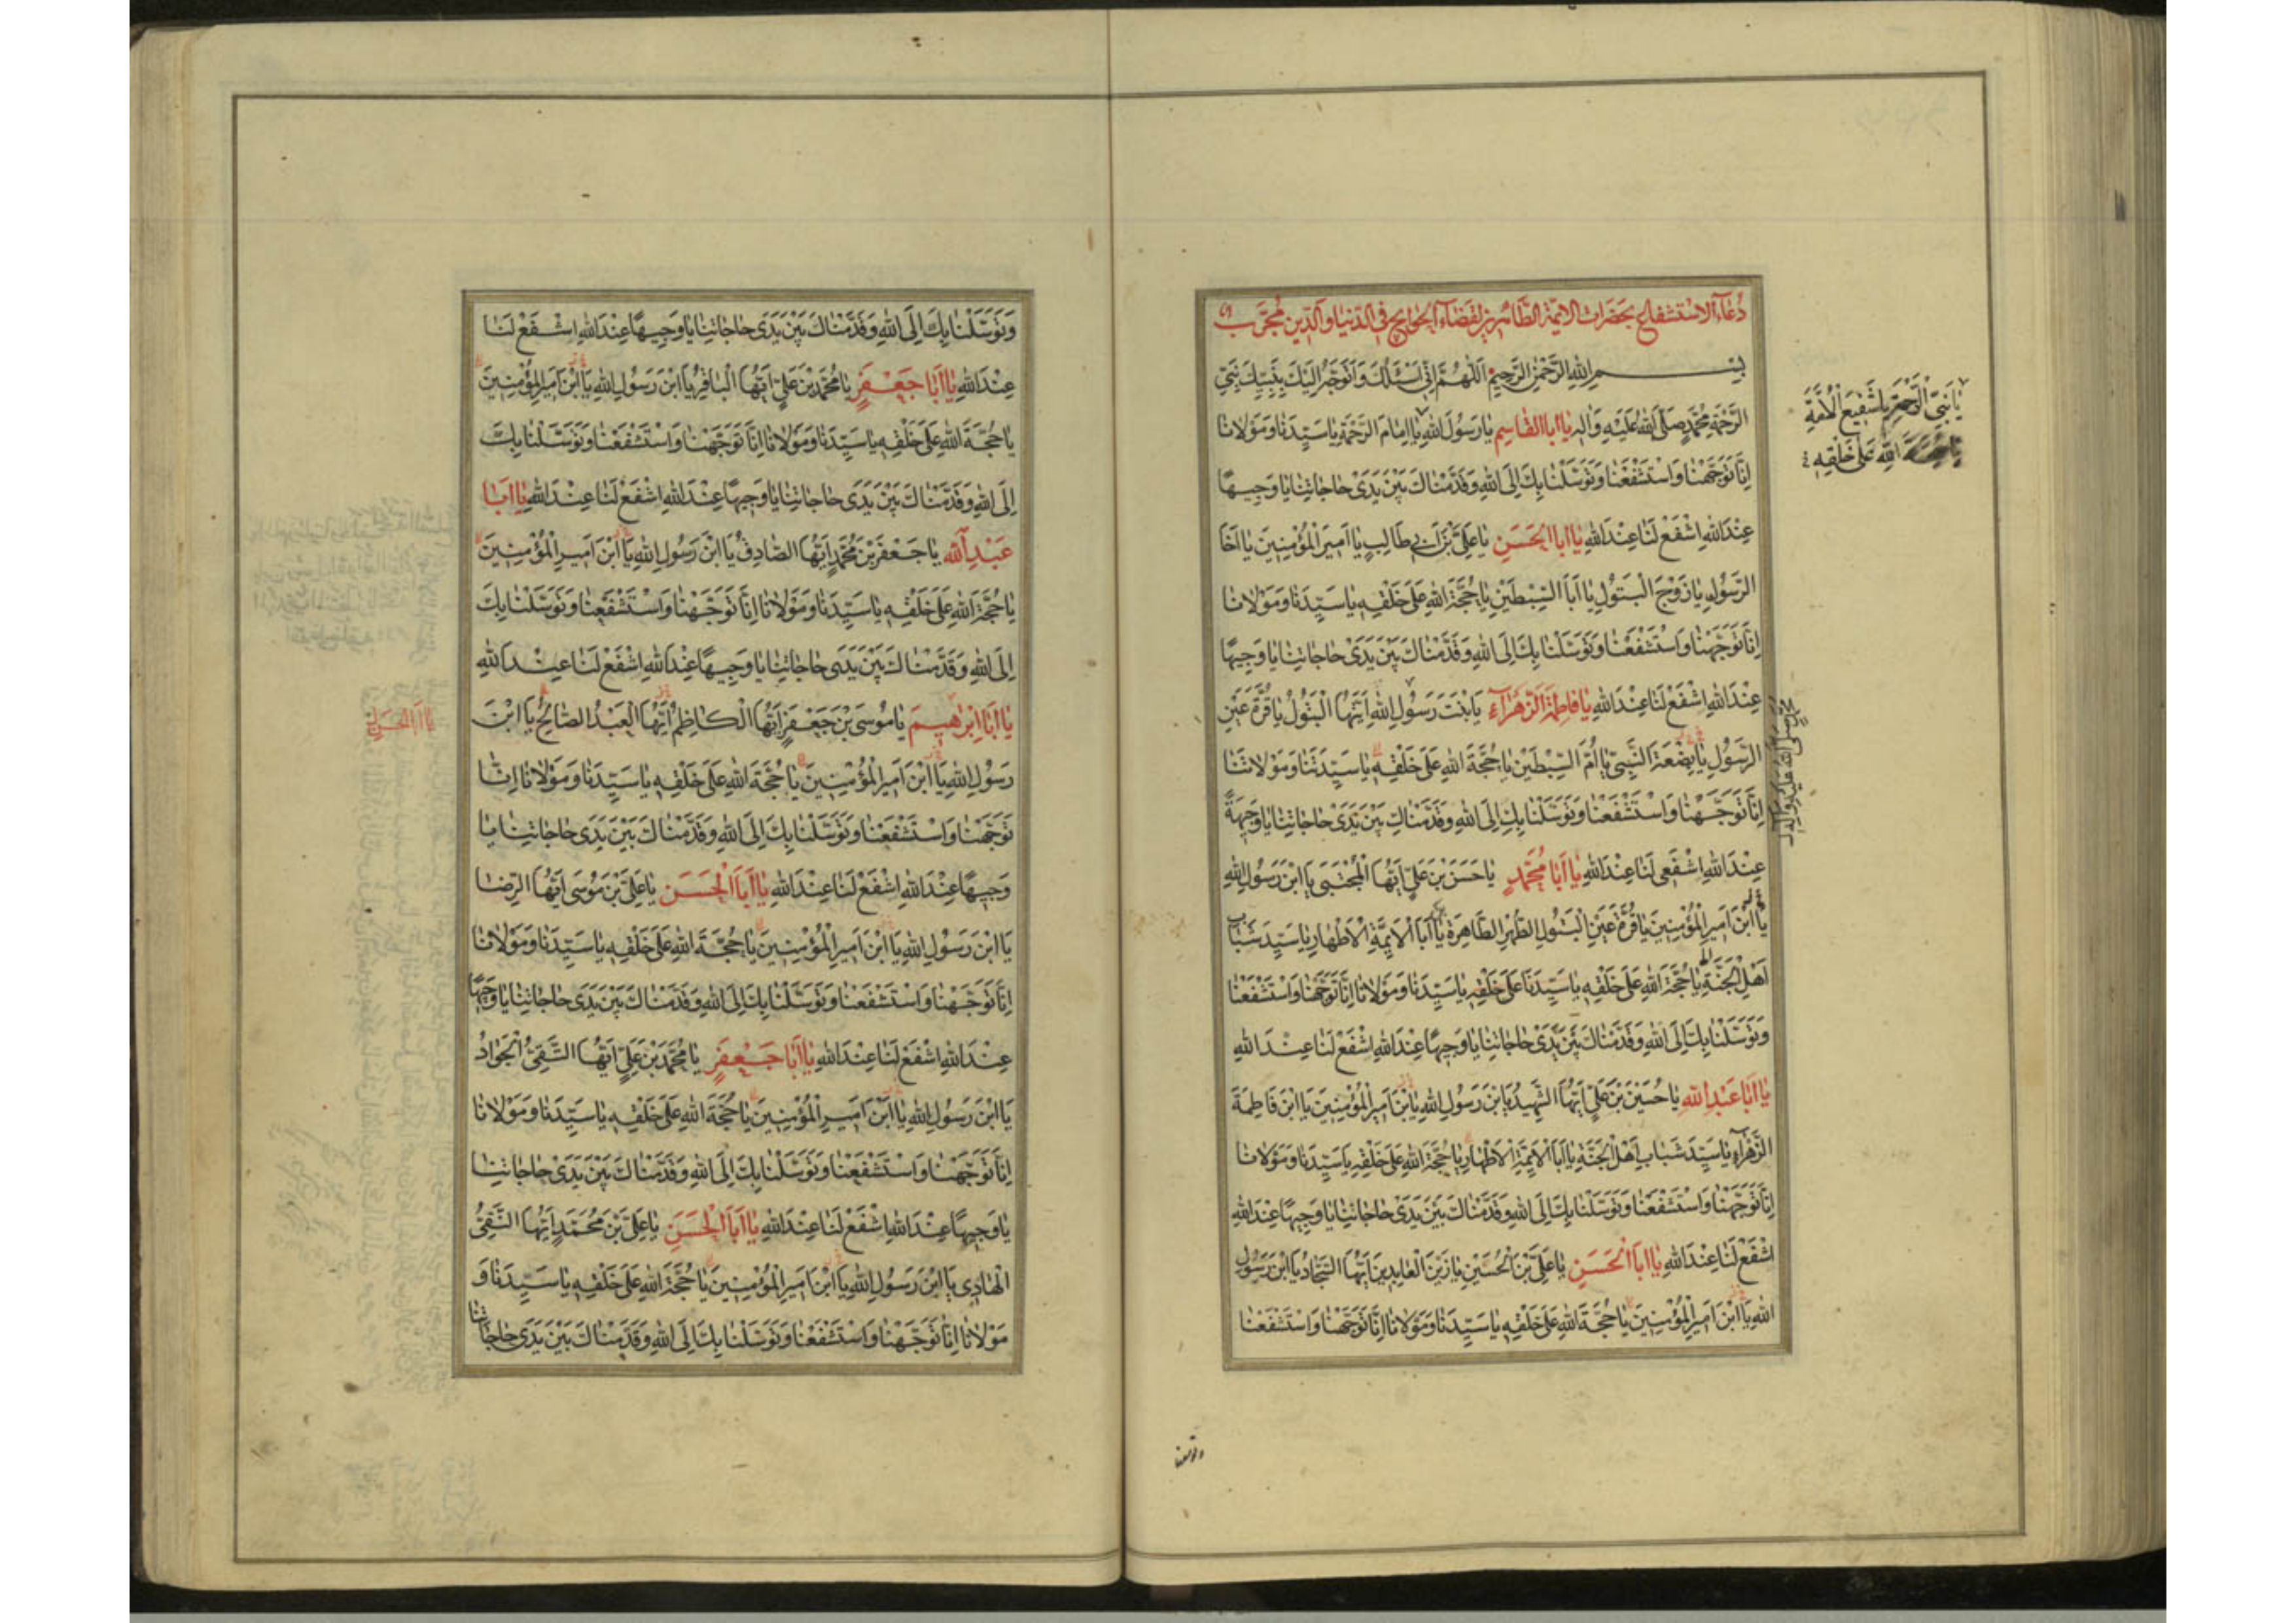 دُعَاءُ الاِسْتِشْفَاعِ بِحَضَرَاتِ الاَئِمَّةِ الطَّاهِرِينَ لِقَضَاءِ الْحَوَائِجِ فِي الدُّنْيَا وَالدِّينِ مُجَرَّب
بِسْمِ اللهِ الرَّحْمٰنِ الرَّحِيمِ اَللّٰهُمَّ اِنِّي اَسْئَلُكَ وَاَتَوَجَّهُ اِلَيْكَ بِنَبِيِّكَ نَبِيِّ
الرَّحْمَةِ مُحَمَّدٍ صَلَّى اللهُ عَلَيْهِ وَاٰلِهِ يَا اَبَا الْقَاسِمِ يَا رَسُولَ اللهِ يَا اِمَامَ الرَّحْمَةِ يَا سَيِّدَنَا وَمَوْلَانَا
اِنَّا تَوَجَّهْنَا وَاسْتَشْفَعْنَا وَتَوَسَّلْنَا بِكَ اِلَى اللهِ وَقَدَّمْنَاكَ بَيْنَ يَدَيْ حَاجَاتِنَا يَا وَجِيهًا
عِنْدَ اللهِ اِشْفَعْ لَنَا عِنْدَ اللهِ يَا اَبَا الْحَسَنِ يَا عَلِيَّ بْنَ اَبِي طَالِبٍ يَا اَمِيرَ الْمُؤْمِنِينَ يَا اَخَا
الرَّسُولِ يَا زَوْجَ الْبَتُولِ يَا اَبَا السِّبْطَيْنِ يَا حُجَّةَ اللهِ عَلَى خَلْقِهِ يَا سَيِّدَنَا وَمَوْلَانَا
اِنَّا تَوَجَّهْنَا وَاسْتَشْفَعْنَا وَتَوَسَّلْنَا بِكَ اِلَى اللهِ وَقَدَّمْنَاكَ بَيْنَ يَدَيْ حَاجَاتِنَا يَا وَجِيهًا
عِنْدَ اللهِ اِشْفَعْ لَنَا عِنْدَ اللهِ يَا فَاطِمَةَ الزَّهْرَاءِ يَا بِنْتَ رَسُولِ اللهِ اَيَّتُهَا الْبَتُولُ يَا قُرَّةَ عَيْنِ
الرَّسُولِ يَا بَضْعَةَ النَّبِيِّ يَا اُمَّ السِّبْطَيْنِ يَا حُجَّةَ اللهِ عَلَى خَلْقِهِ يَا سَيِّدَتَنَا وَمَوْلَاتَنَا
اِنَّا تَوَجَّهْنَا وَاسْتَشْفَعْنَا وَتَوَسَّلْنَا بِكِ اِلَى اللهِ وَقَدَّمْنَاكِ بَيْنَ يَدَيْ حَاجَاتِنَا يَا وَجِيهَةً
عِنْدَ اللهِ اِشْفَعِي لَنَا عِنْدَ اللهِ يَا اَبَا مُحَمَّدٍ يَا حَسَنَ بْنَ عَلِيٍّ اَيُّهَا الْمُجْتَبَى يَا ابْنَ رَسُولِ اللهِ
يَا ابْنَ اَمِيرِ الْمُؤْمِنِينَ يَا قُرَّةَ عَيْنِ الْبَتُولِ الطُّهْرِ الطَّاهِرَةِ يَا اَبَا الْاَئِمَّةِ الْاَطْهَارِ يَا سَيِّدَ شَبَابِ
اَهْلِ الْجَنَّةِ يَا حُجَّةَ اللهِ عَلَى خَلْقِهِ يَا سَيِّدَنَا عَلَى خَلْقِهِ يَا سَيِّدَنَا وَمَوْلَانَا اِنَّا تَوَجَّهْنَا وَاسْتَشْفَعْنَا
وَتَوَسَّلْنَا بِكَ اِلَى اللهِ وَقَدَّمْنَاكَ بَيْنَ يَدَيْ حَاجَاتِنَا يَا وَجِيهًا عِنْدَ اللهِ اِشْفَعْ لَنَا عِنْدَ اللهِ
يَا اَبَا عَبْدِ اللهِ يَا حُسَيْنَ بْنَ عَلِيٍّ اَيُّهَا الشَّهِيدُ يَا ابْنَ رَسُولِ اللهِ يَا ابْنَ اَمِيرِ الْمُؤْمِنِينَ يَا ابْنَ فَاطِمَةَ
الزَّهْرَاءِ يَا سَيِّدَ شَبَابِ اَهْلِ الْجَنَّةِ يَا اَبَا الْاَئِمَّةِ الْاَطْهَارِ يَا حُجَّةَ اللهِ عَلَى خَلْقِهِ يَا سَيِّدَنَا وَمَوْلَانَا
اِنَّا تَوَجَّهْنَا وَاسْتَشْفَعْنَا وَتَوَسَّلْنَا بِكَ اِلَى اللهِ وَقَدَّمْنَاكَ بَيْنَ يَدَيْ حَاجَاتِنَا يَا وَجِيهًا عِنْدَ اللهِ
اِشْفَعْ لَنَا عِنْدَ اللهِ يَا اَبَا الْحَسَنِ يَا عَلِيَّ بْنَ الْحُسَيْنِ يَا زَيْنَ الْعَابِدِينَ اَيُّهَا السَّجَّادُ يَا ابْنَ رَسُولِ
اللهِ يَا ابْنَ اَمِيرِ الْمُؤْمِنِينَ يَا حُجَّةَ اللهِ عَلَى خَلْقِهِ يَا سَيِّدَنَا وَمَوْلَانَا اِنَّا تَوَجَّهْنَا وَاسْتَشْفَعْنَا
يَا نَبِيَّ الرَّحْمَةِ يَا شَفِيعَ الْاُمَّةِ
يَا حُجَّةَ اللهِ عَلَى خَلْقِهِ
صَلَّى اللهُ عَلَيْهِ وَاٰلِهِ
وتوسلنا
وَتَوَسَّلْنَا بِكَ اِلَى اللهِ وَقَدَّمْنَاكَ بَيْنَ يَدَيْ حَاجَاتِنَا يَا وَجِيهًا عِنْدَ اللهِ اِشْفَعْ لَنَا
عِنْدَ اللهِ يَا اَبَا جَعْفَرٍ يَا مُحَمَّدَ بْنَ عَلِيٍّ اَيُّهَا الْبَاقِرُ يَا ابْنَ رَسُولِ اللهِ يَا ابْنَ اَمِيرِ الْمُؤْمِنِينَ
يَا حُجَّةَ اللهِ عَلَى خَلْقِهِ يَا سَيِّدَنَا وَمَوْلَانَا اِنَّا تَوَجَّهْنَا وَاسْتَشْفَعْنَا وَتَوَسَّلْنَا بِكَ
اِلَى اللهِ وَقَدَّمْنَاكَ بَيْنَ يَدَيْ حَاجَاتِنَا يَا وَجِيهًا عِنْدَ اللهِ اِشْفَعْ لَنَا عِنْدَ اللهِ يَا اَبَا
عَبْدِ اللهِ يَا جَعْفَرَ بْنَ مُحَمَّدٍ اَيُّهَا الصَّادِقُ يَا ابْنَ رَسُولِ اللهِ يَا ابْنَ اَمِيرِ الْمُؤْمِنِينَ
يَا حُجَّةَ اللهِ عَلَى خَلْقِهِ يَا سَيِّدَنَا وَمَوْلَانَا اِنَّا تَوَجَّهْنَا وَاسْتَشْفَعْنَا وَتَوَسَّلْنَا بِكَ
اِلَى اللهِ وَقَدَّمْنَاكَ بَيْنَ يَدَيْ حَاجَاتِنَا يَا وَجِيهًا عِنْدَ اللهِ اِشْفَعْ لَنَا عِنْدَ اللهِ
يَا اَبَا اِبْرَاهِيمَ يَا مُوسَى بْنَ جَعْفَرٍ اَيُّهَا الْكَاظِمُ اَيُّهَا الْعَبْدُ الصَّالِحُ يَا ابْنَ
رَسُولِ اللهِ يَا ابْنَ اَمِيرِ الْمُؤْمِنِينَ يَا حُجَّةَ اللهِ عَلَى خَلْقِهِ يَا سَيِّدَنَا وَمَوْلَانَا اِنَّا
تَوَجَّهْنَا وَاسْتَشْفَعْنَا وَتَوَسَّلْنَا بِكَ اِلَى اللهِ وَقَدَّمْنَاكَ بَيْنَ يَدَيْ حَاجَاتِنَا يَا
وَجِيهًا عِنْدَ اللهِ اِشْفَعْ لَنَا عِنْدَ اللهِ يَا اَبَا الْحَسَنِ يَا عَلِيَّ بْنَ مُوسَى اَيُّهَا الرِّضَا
يَا ابْنَ رَسُولِ اللهِ يَا ابْنَ اَمِيرِ الْمُؤْمِنِينَ يَا حُجَّةَ اللهِ عَلَى خَلْقِهِ يَا سَيِّدَنَا وَمَوْلَانَا
اِنَّا تَوَجَّهْنَا وَاسْتَشْفَعْنَا وَتَوَسَّلْنَا بِكَ اِلَى اللهِ وَقَدَّمْنَاكَ بَيْنَ يَدَيْ حَاجَاتِنَا يَا وَجِيهًا
عِنْدَ اللهِ اِشْفَعْ لَنَا عِنْدَ اللهِ يَا اَبَا جَعْفَرٍ يَا مُحَمَّدَ بْنَ عَلِيٍّ اَيُّهَا التَّقِيُّ الْجَوَادُ
يَا ابْنَ رَسُولِ اللهِ يَا ابْنَ اَمِيرِ الْمُؤْمِنِينَ يَا حُجَّةَ اللهِ عَلَى خَلْقِهِ يَا سَيِّدَنَا وَمَوْلَانَا
اِنَّا تَوَجَّهْنَا وَاسْتَشْفَعْنَا وَتَوَسَّلْنَا بِكَ اِلَى اللهِ وَقَدَّمْنَاكَ بَيْنَ يَدَيْ حَاجَاتِنَا
يَا وَجِيهًا عِنْدَ اللهِ اِشْفَعْ لَنَا عِنْدَ اللهِ يَا اَبَا الْحَسَنِ يَا عَلِيَّ بْنَ مُحَمَّدٍ اَيُّهَا النَّقِيُّ
الْهَادِي يَا ابْنَ رَسُولِ اللهِ يَا ابْنَ اَمِيرِ الْمُؤْمِنِينَ يَا حُجَّةَ اللهِ عَلَى خَلْقِهِ يَا سَيِّدَنَا وَ
مَوْلَانَا اِنَّا تَوَجَّهْنَا وَاسْتَشْفَعْنَا وَتَوَسَّلْنَا بِكَ اِلَى اللهِ وَقَدَّمْنَاكَ بَيْنَ يَدَيْ حَاجَاتِنَا